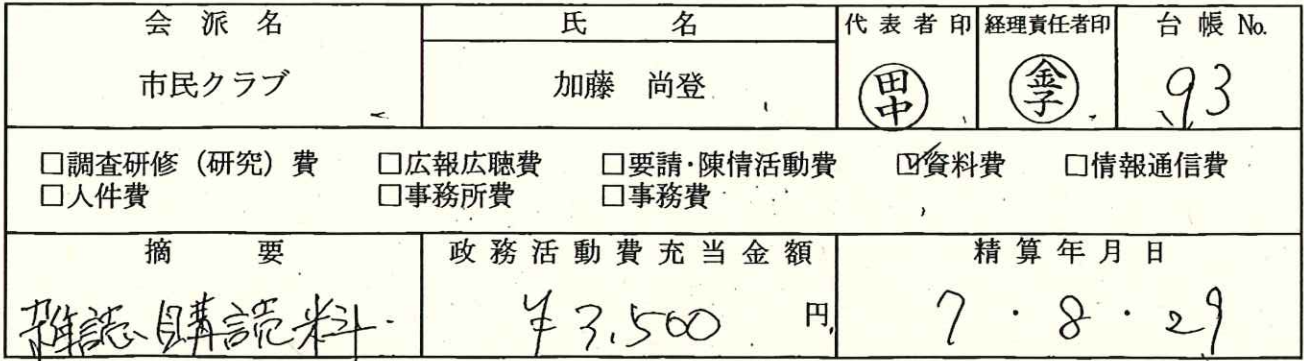 会派名 氏名 代表者印 経理責任者印 台帳 No.
市民クラブ 加藤 尚登 田中 金子 93
□調査研修（研究）費 □広報広聴費 □要請・陳情活動費 ☑資料費 □情報通信費
□人件費 □事務所費 □事務費
摘要 政務活動費充当金額 精算年月日
雑誌購読料 ¥3,500 円 7・8・29